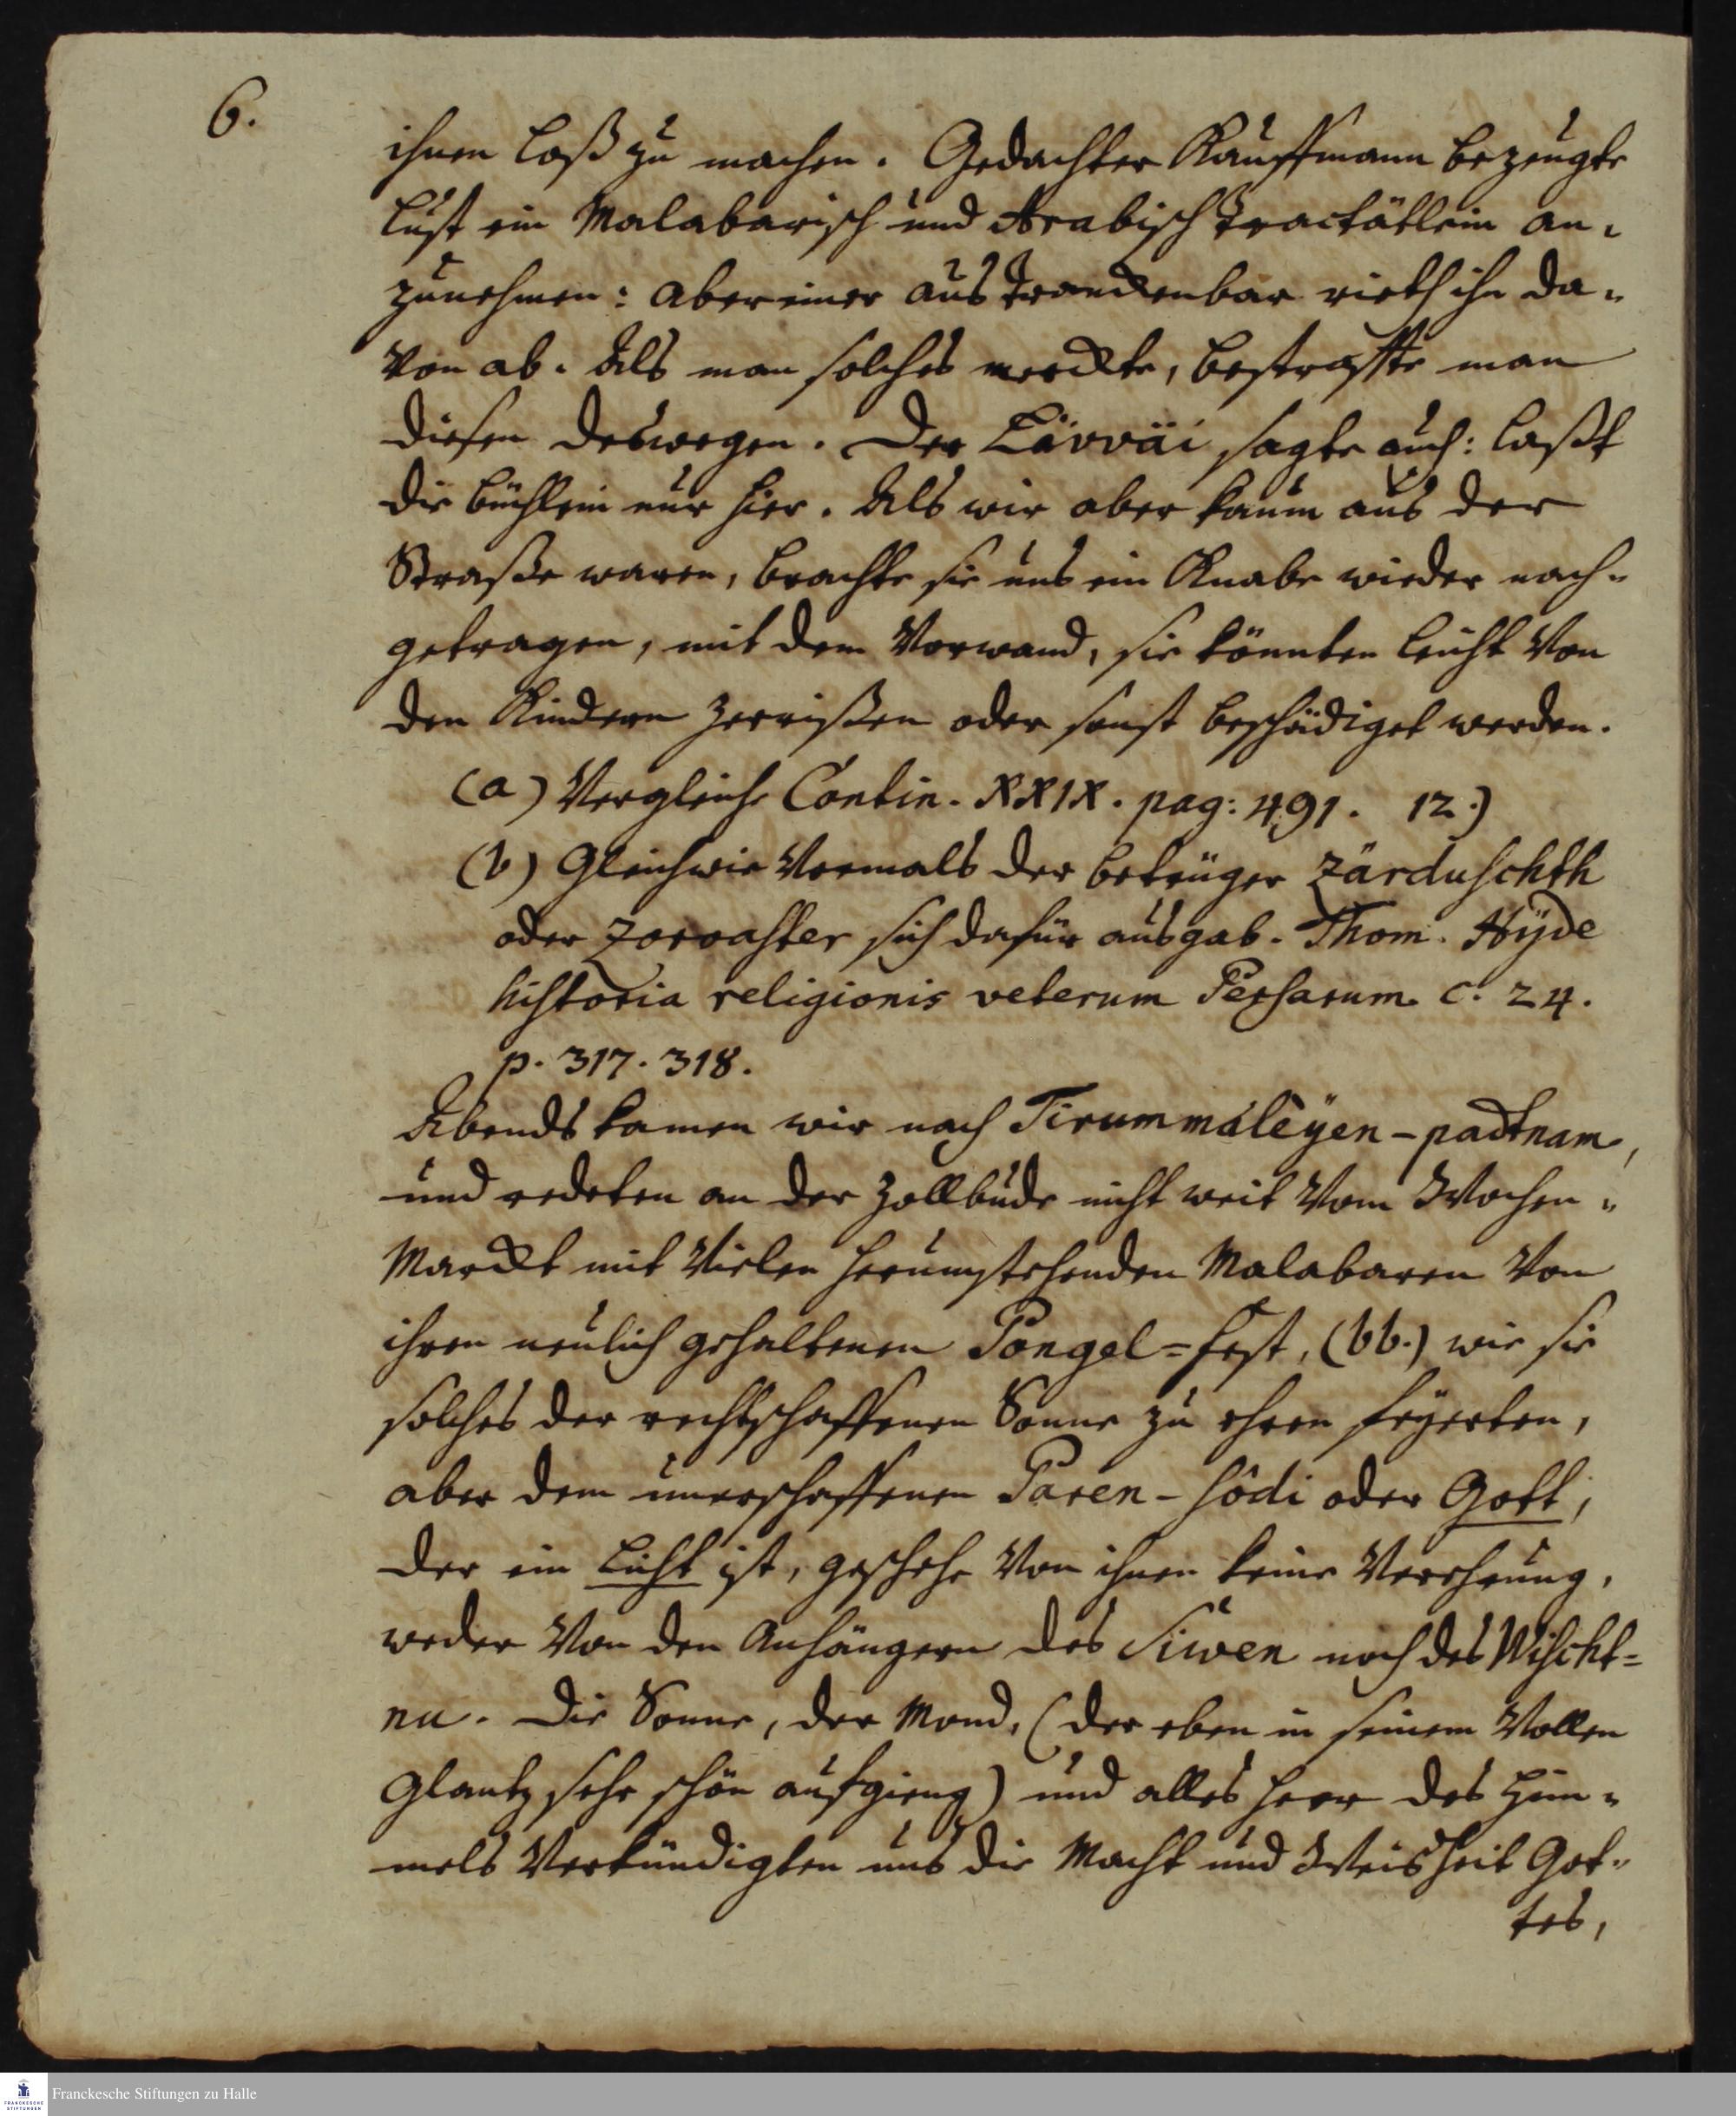 6.
ihnen loß zu machen. Gedachter Kauffmann bezeugte
Lust ein Malabarisch und Arabisch Tractätlein an-
zunehmen: aber einer aus Tranckenbar rieth ihn da-
von ab. Als man solches merckte, bestraffte man
diesen deswegen. Der Lävväi sagte auch: laßt
die Büchlein nur hier. Als wir aber kaum aus der
Straße waren, brachte sie uns ein Knabe wieder nach-
getragen, mit dem Vorwand, sie könnten leicht von
den Kindern zerrißen oder sonst beschädiget werden.
(a) Vergleiche Contin. XXIX. pag: 491. 12.)
(b) Gleichwie vormals der Betrüger Zärduschth
oder Zoroaster sich dafür ausgab. Thom. Hyde
historia religionis veterum Persarum. c. 24.
p. 317. 318.
Abends kamen wir nach Tirummálèyen-padtnam,
und redeten an der Zollbude nicht weit vom Wochen-
Marckt mit vielen herumstehenden Malabaren von
ihren neulich gehaltenen Pongel=Fest, (bb.) wie sie
solches der rechtschaffenen Sonne zu ehren feyerten,
aber dem unerschaffenen Paren-sôdi oder Gott,
der ein Licht ist, geschehe von ihnen keine Verehrung,
weder von den Anhängern des Siwen noch des Wischt=
nu. Die Sonne, der Mond, (der eben in seinem vollen
Glantz sehr schön aufgieng) und alles Heer des Him-
mels verkündigten uns die Macht und Weisheit Got-
tes,
Franckesche Stiftungen zu Halle
FRANCKESCHE
STIFTUNGEN